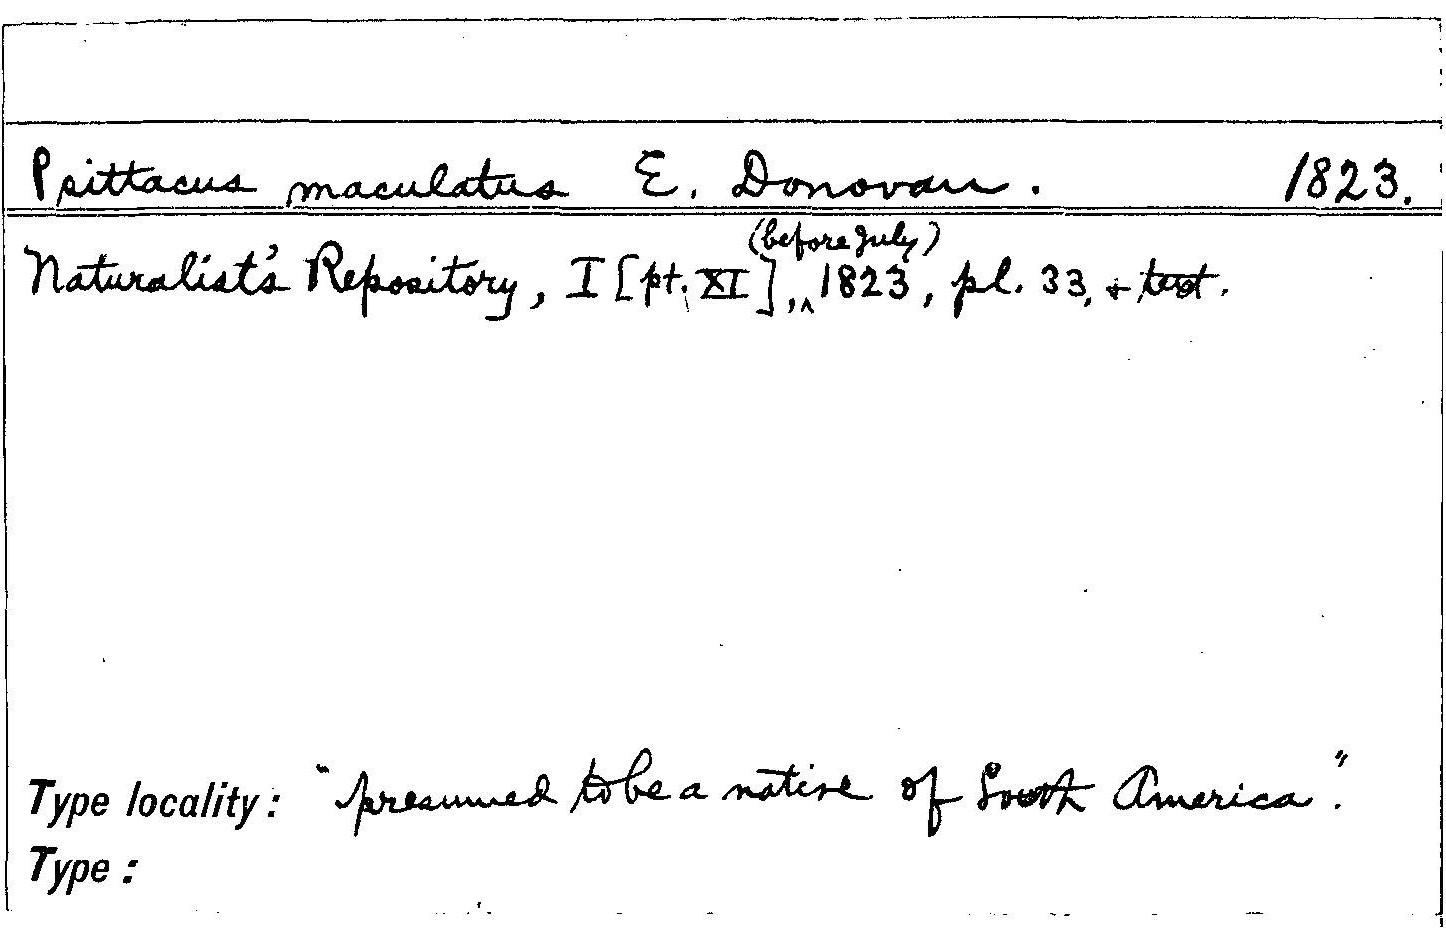 Psittacus maculatus E. Donovan. 1823.
(before July)
Naturalist's Repository, I [pt. XI], ^ 1823, pl. 33, + text.
Type locality: "presumed to be a native of South America".
Type: